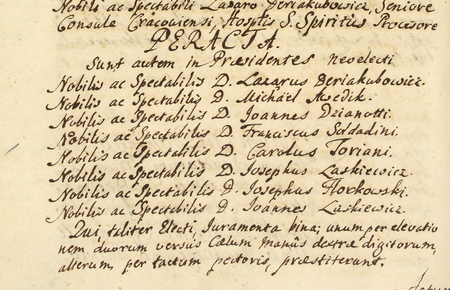 Nobilis ac Spectabili Lazaro Deriakubowicz, Seniore
Consule Cracoviensi, Hosptis S. Spiritus Provisore
PERACTA.
Sunt autem in Præsidentes neoelecti
Nobilis ac Spectabilis D. Lazarus Deriakubowicz.
Nobilis ac Spectabilis D. Michael Awedik.
Nobilis ac Spectabilis D. Joannes Dzianotti.
Nobilis ac Spectabilis D. Franciscus Soldadini.
Nobilis ac Spectabilis D. Carolus Toriani.
Nobilis ac Spectabilis D. Josephus Laskiewicz.
Nobilis ac Spectabilis D. Josephus Florkowski.
Nobilis ac Spectabilis D. Joannes Laskiewicz.
Qui taliter Electi, Juramenta bina; unum per elevatio
nem duorum versus Cælum manus dextræ digitorum,
alterum, per tactum pectoris, præstiterunt.